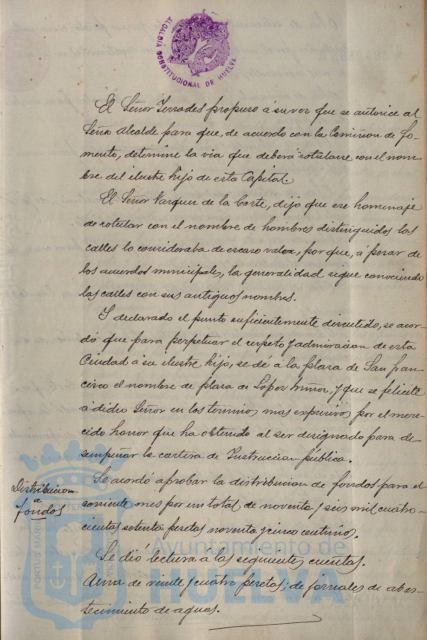 ALCALDIA CONSTITUCIONAL DE HUELVA
El Señor Terrades propuso á su vez que se autorice al
Señor Alcalde para que, de acuerdo con la Comision de Fo-
mento, determine la via que deberá rotularse con el nom-
bre del ilustre hijo de esta Capital.
El Señor Vazquez de la Corte, dijo que ese homenaje
de rotular con el nombre de hombres distinguidos las
calles lo consideraba de escaso valor, por que, á pesar de
los acuerdos municipales, la generalidad sigue conociendo
las calles con sus antiguos nombres.
Y declarado el punto suficientemente discutido, se acor-
dó que para perpetuar el respeto y admiracion de esta
Ciudad á su ilustre hijo, se dé a la plaza de San Fran-
cisco el nombre de plaza de Lopez Muñoz, y que se felicite
á dicho Señor en los terminos mas expresivos por el mere-
cido honor que ha obtenido al ser designado para de-
sempeñar la cartera de Instruccion pública.
Distribucion
de
fondos
Se acordó aprobar la distribucion de fondos para el
corriente mes por un total de noventa y seis mil cuatro-
cientas setenta pesetas noventa y cinco centimos.
Se dió lectura a las siguientes cuentas.
Una de veinte y cuatro pesetas, de jornales de abas-
tecimiento de aguas.
PORTUS MARIS
Ayuntamiento de
HUELVA